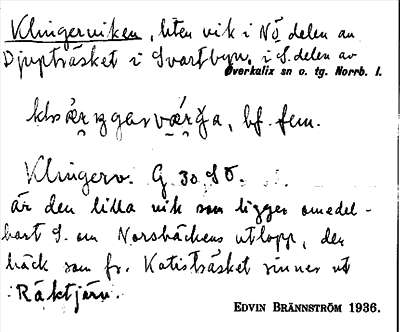 Klingerviken, liten vik i NÖ delen av
Djupträsket i Svartbyn, i S. delen av
Överkalix sn o. tg. Norrb. l.
bf. fem.
Klingerv. G 30 SO.
är den lilla vik som ligger omedel-
bart S. om Norsbäckens utlopp, den
bäck som fr. Katisträsket rinner ut
i Räktjärn.
EDVIN BRÄNNSTRÖM 1936.